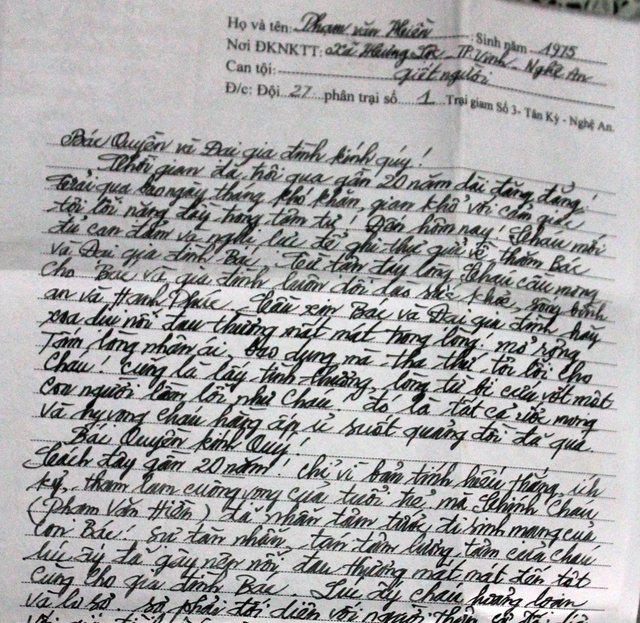 Họ và tên: Phạm Văn Hiền ; Sinh năm - 1975
Nơi ĐKNKTT: Xã Hưng Lộc - TP Vinh - Nghệ An
Can tội: giết người
Đ/c: Đội 27 phân trại số 1 Trại giam Số 3- Tân Kỳ - Nghệ An.
Bác Quyền và Đại gia đình kính quý!
Thời gian đã trôi qua gần 20 năm dài đằng đẵng!
trải qua bao ngày tháng khó khăn, gian khổ với cảm giác
tội lỗi nặng đầy trong tâm tư! Đến hôm nay! Cháu mới
đủ can đảm và nghị lực để ghi thư gửi về thăm Bác
và Đại gia đình Bác. Từ tận đáy lòng Cháu cầu mong
cho Bác và gia đình luôn dồi dào sức khỏe, sống bình
an và Hạnh Phúc. Cầu xin Bác và Đại gia đình hãy
xoa dịu nỗi đau thương mất mát trong lòng! mở rộng
Tấm lòng nhân ái, bao dung mà tha thứ tội lỗi cho
Cháu! cũng là lấy tình thương, lòng từ bi cứu vớt một
con người lầm lỗi như Cháu! đó là tất cả ước mong
và hy vọng cháu hằng ấp ủ suốt quãng đời đã qua.
Bác Quyền kính Quý!
Cách đây gần 20 năm! chỉ vì bản tính hiếu thắng, ích
kỷ, tham lam cuồng vọng của tuổi trẻ, mà Chính Cháu
(Phạm Văn Hiền) đã nhẫn tâm tước đi sinh mạng của
con Bác! sự tàn nhẫn, tán tận lương tâm của cháu
lúc ấy đã gây nên nỗi đau thương mất mát đến tột
cùng cho gia đình Bác. Lúc ấy cháu hoảng loạn
và lo sợ. sợ phải đối diện với người thân